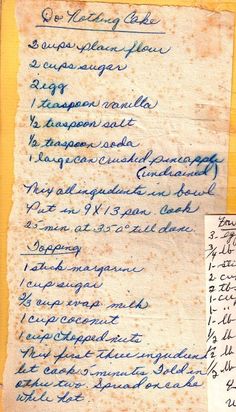 Do Nothing Cake
2 cups plain flour
2 cups sugar
2 egg
1 teaspoon vanilla
½ teaspoon salt
½ teaspoon soda
1 large can crushed pineapple
(undrained)
Mix all ingredients in bowl
Put in 9 X 13 pan. Cook
25 min at 350° till done.
Topping
1 stick margarine
1 cup sugar
2/3 cup evap milk
1 cup coconut
1 cup chopped nuts
Mix first three ingredients
let cook 5 minutes. Fold in
other two. Spread on cake
while hot
3-
3/4 lb
1-
2 t
1- c
1-
1- lb
1/2 lb